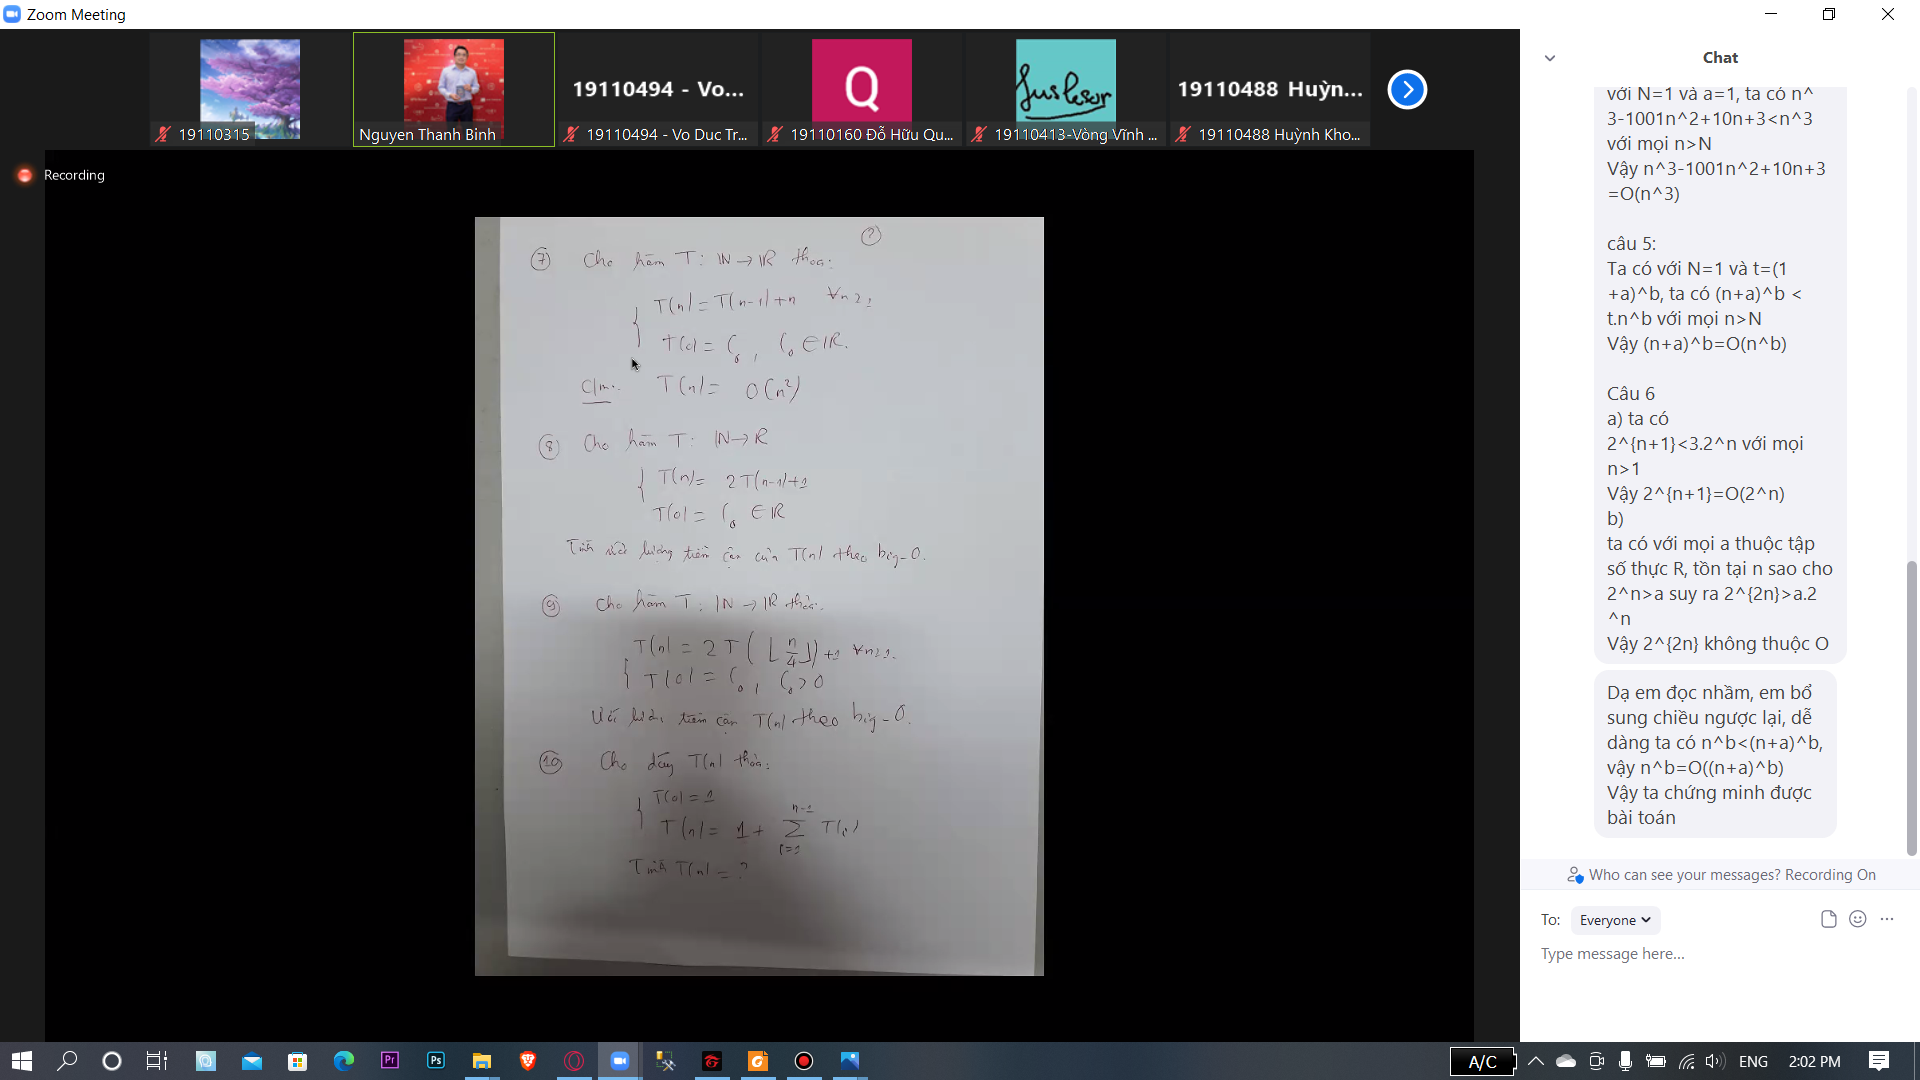 Zoom Meeting
19110315
Nguyen Thanh Binh
19110494 - Vo...
19110494 - Vo Duc Tr...
Q
19110160 Đỗ Hữu Qu...
19110413-Vòng Vĩnh ...
19110488 Huỳn...
19110488 Huỳnh Kho...
Recording
(2)
(7) Cho hàm T: ℕ → ℝ thoả:
T(n) = T(n-1) + n ∀n≥1
T(0) = C₀, C₀ ∈ ℝ.
C/m: T(n) = O(n²)
(8) Cho hàm T: ℕ → ℝ
T(n) = 2T(n-1)+1
T(0) = C₀ ∈ ℝ
lượng tiệm cận của T(n) theo big-O.
(9) Cho hàm T: ℕ → ℝ thỏa:
T(n) = 2T(⌊n/4⌋)+1 ∀n≥1.
T(0) = C₀, C₀ > 0
tiệm cận T(n) theo big-O.
(10) Cho dãy T(n) thỏa:
T(0) = 1
T(n) = 1 + ∑_{i=1}^{n-1} T(i)
Tính T(n) = ?
Chat
với N=1 và a=1, ta có n^
3-1001n^2+10n+3<n^3
với mọi n>N
Vậy n^3-1001n^2+10n+3
=O(n^3)
câu 5:
Ta có với N=1 và t=(1
+a)^b, ta có (n+a)^b <
t.n^b với mọi n>N
Vậy (n+a)^b=O(n^b)
Câu 6
a) ta có
2^{n+1}<3.2^n với mọi
n>1
Vậy 2^{n+1}=O(2^n)
b)
ta có với mọi a thuộc tập
số thực R, tồn tại n sao cho
2^n>a suy ra 2^{2n}>a.2
^n
Vậy 2^{2n} không thuộc O
Dạ em đọc nhầm, em bổ
sung chiều ngược lại, dễ
dàng ta có n^b<(n+a)^b,
vậy n^b=O((n+a)^b)
Vậy ta chứng minh được
bài toán
Who can see your messages? Recording On
To: Everyone
Type message here...
Pr
Ps
A/C
ENG
2:02 PM